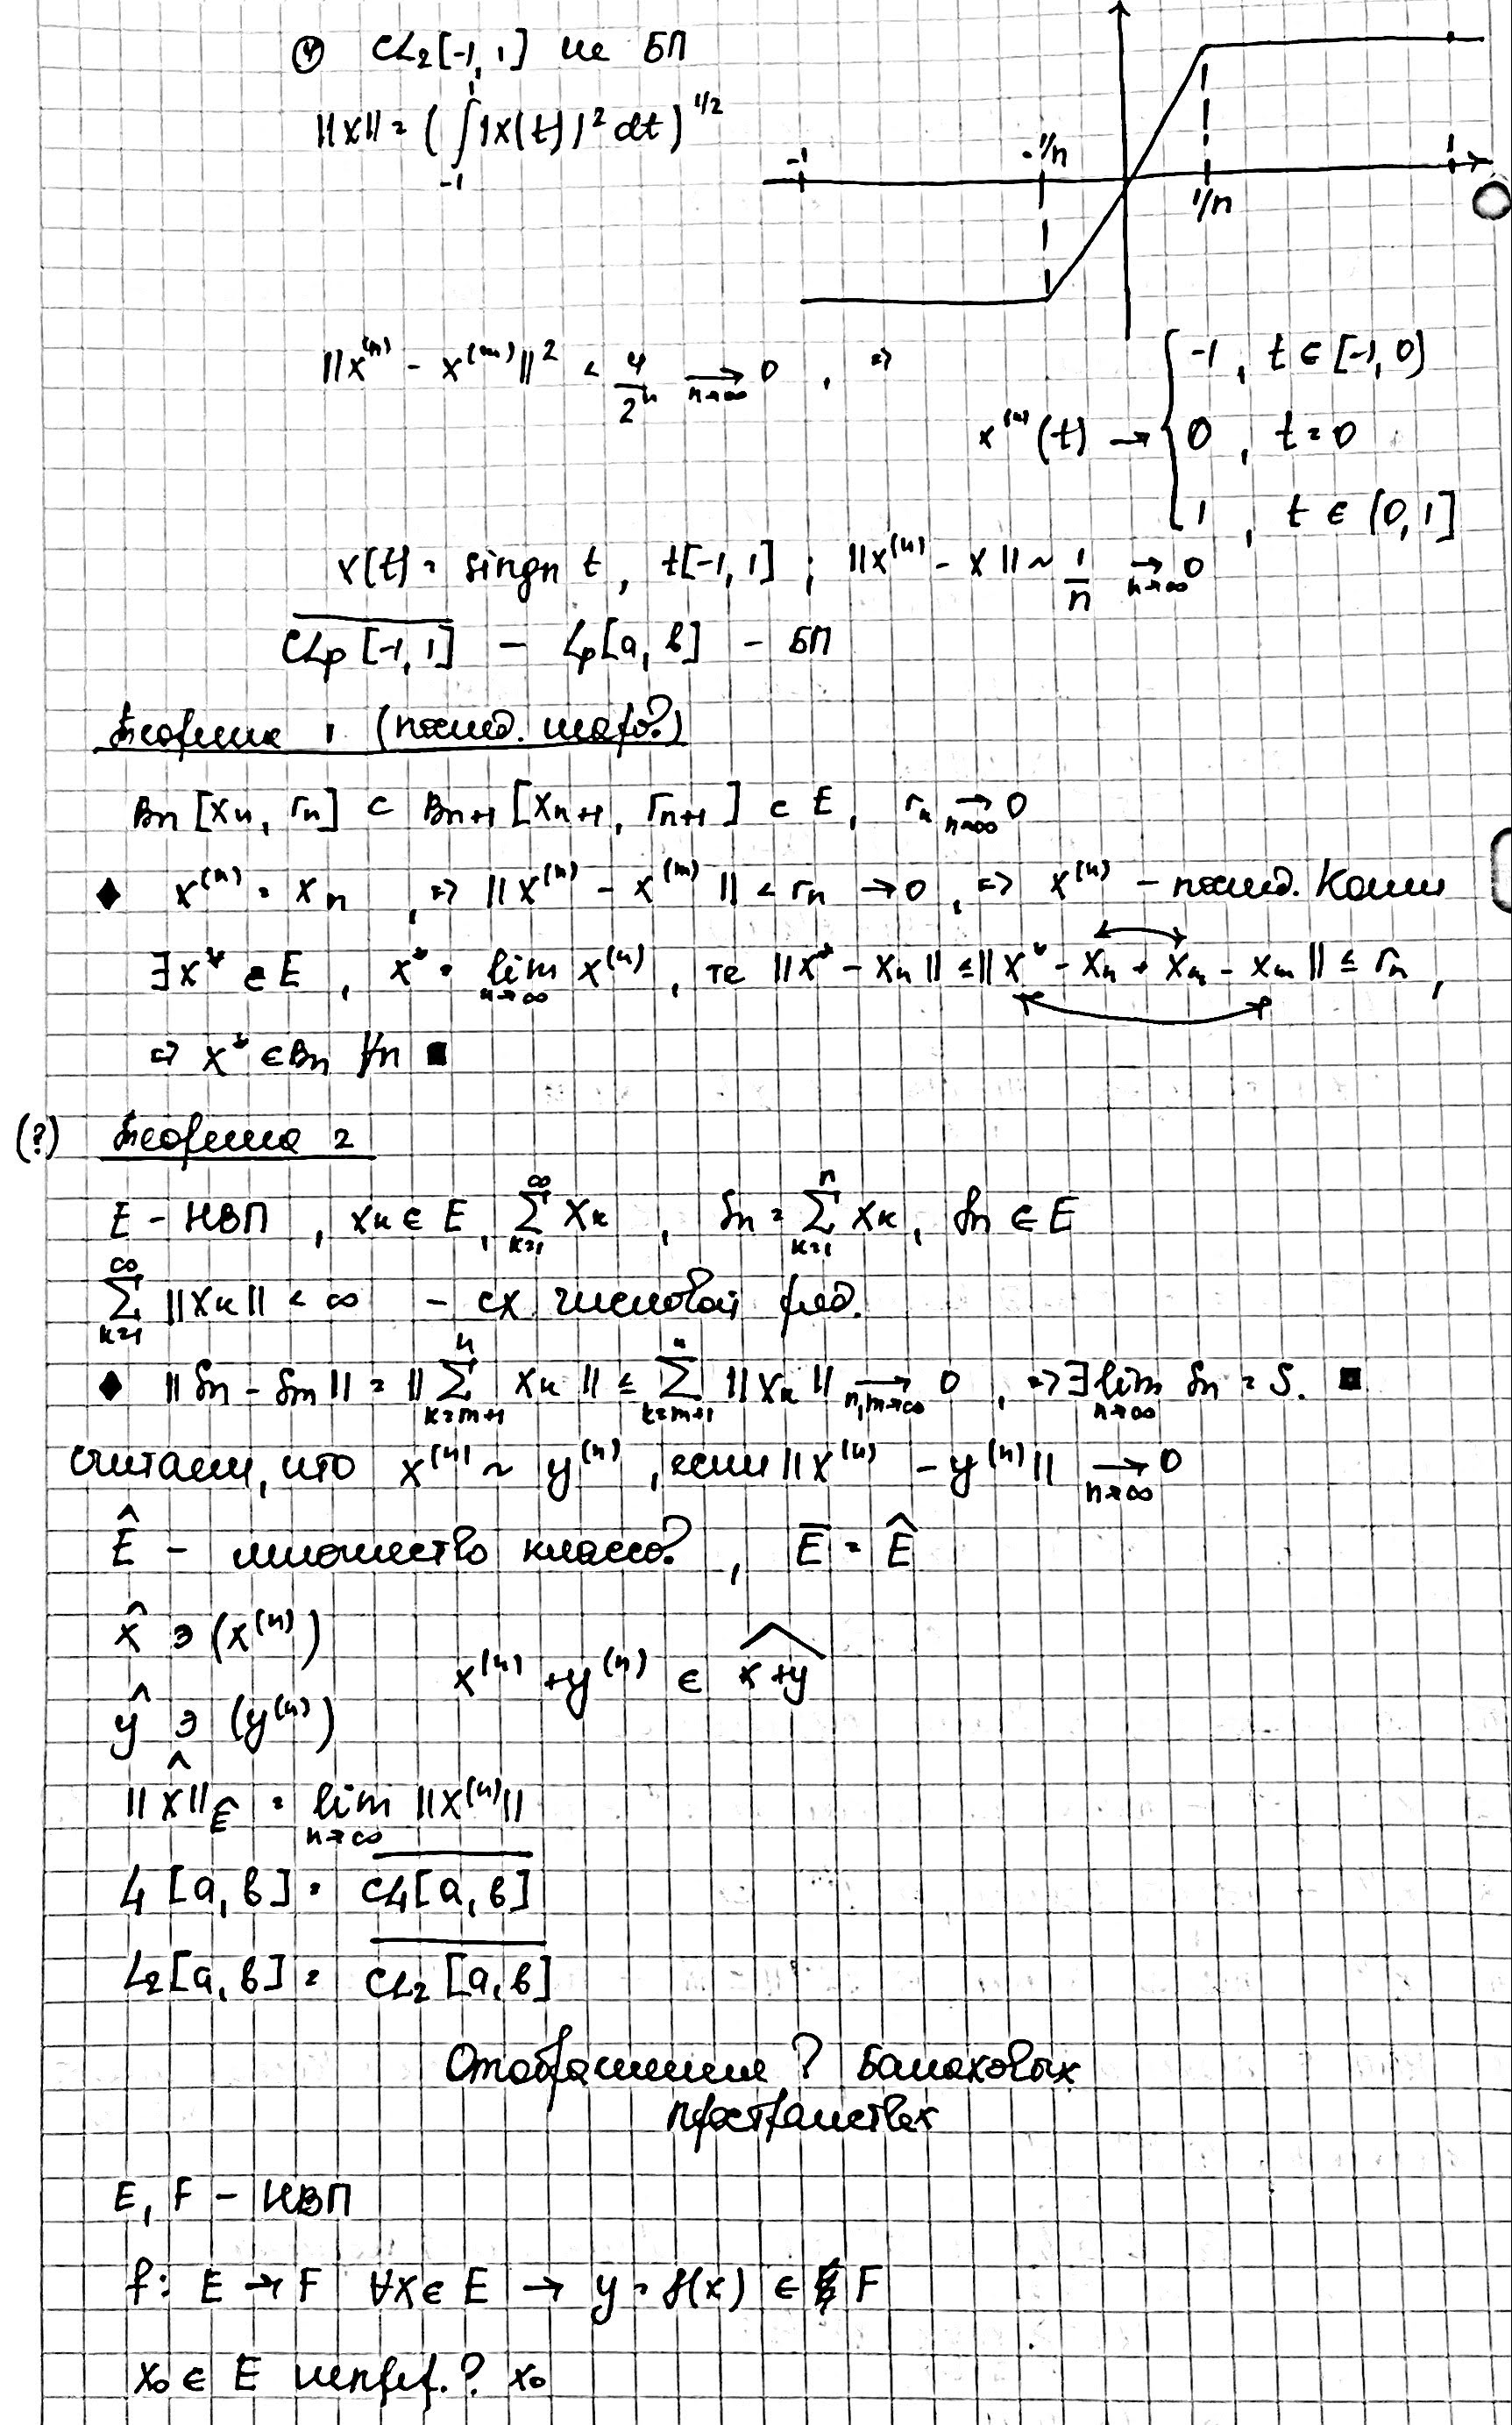 ④ CL₂[-1, 1] не БП
||x|| = (∫₋₁¹ |x(t)|² dt)^{1/2}
-1 -1/n 1/n 1
||x⁽ⁿ⁾ - x⁽ᵐ⁾||² < 4/2ⁿ →_{n→∞} 0, ⇒
x⁽ⁿ⁾(t) → { -1, t ∈ [-1, 0)
0, t = 0
1, t ∈ (0, 1]
x(t) = singn t, t[-1, 1]; ||x⁽ⁿ⁾ - x|| ~ 1/n →_{n→∞} 0
\overline{CLp [-1, 1]} - Lp[a, b] - БП
Теорема 1 (послед. шаров)
Bn [xn, rn] ⊂ Bn+1 [xn+1, rn+1] ⊂ E, rn →_{n→∞} 0
◆ x⁽ⁿ⁾ = xn, ⇒ ||x⁽ⁿ⁾ - x⁽ᵐ⁾|| < rn → 0, ⇒ x⁽ⁿ⁾ - послед. Коши
∃x* ∈ E, x* = lim_{n→∞} x⁽ⁿ⁾, те ||x* - xn|| ≤ ||x* - xn + xm - xm|| ≤ rn,
⇒ x* ∈ Bn ∀n ■
(?) Теорема 2
E - НВП, xk ∈ E, ∑_{k=1}^{∞} xk, Sn = ∑_{k=1}^{n} xk, Sn ∈ E
∑_{k=1}^{∞} ||xk|| < ∞ - сх числовой ряд.
◆ ||Sn - Sm|| = ||∑_{k=m+1}^{n} xk|| ≤ ∑_{k=m+1}^{n} ||xk|| →_{n,m→∞} 0, ⇒ ∃ lim_{n→∞} Sn = S. ■
считаем, что x⁽ⁿ⁾ ~ y⁽ⁿ⁾, если ||x⁽ⁿ⁾ - y⁽ⁿ⁾|| →_{n→∞} 0
Ê - множество классов, Ē = Ê
x̂ ∋ (x⁽ⁿ⁾)
x⁽ⁿ⁾ + y⁽ⁿ⁾ ∈ \widehat{x+y}
ŷ ∋ (y⁽ⁿ⁾)
||x̂||_Ê = lim_{n→∞} ||x⁽ⁿ⁾||
L₁[a, b] = \overline{CL₁[a, b]}
L₂[a, b] = \overline{CL₂[a, b]}
Отображение в Банаховых
пространствах
E, F - НВП
f: E → F ∀x ∈ E → y = f(x) ∈ F
x₀ ∈ E непрер. в x₀